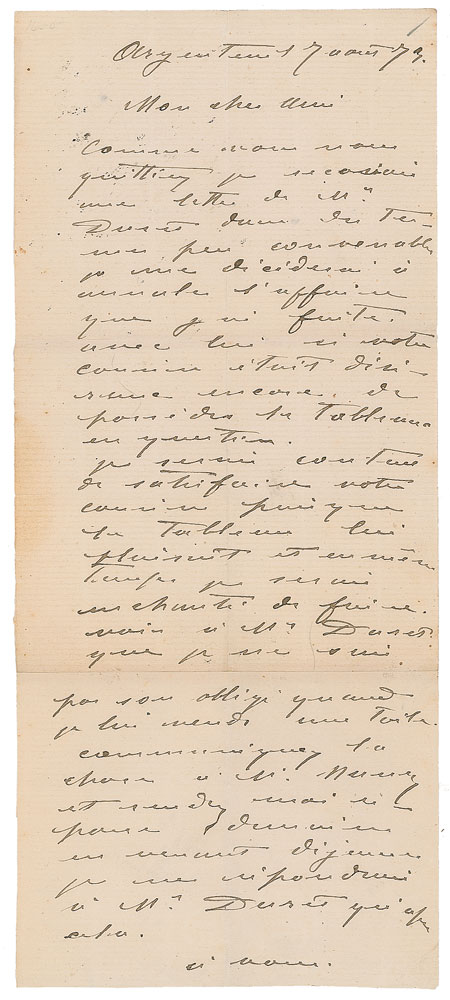 Argenteuil 7 aout 73.
Mon cher Ami
Comme vous nous
quittiez je recevais
une lettre de Mr
Duret dans des ter-
mes peu convenables
je me déciderai à
annuler l'affaire
que j'ai faite.
avec lui si votre
cousin était dési-
reux encore. de
posséder le tableau
en question.
je serai content
de satisfaire votre
cousin puisque
le tableau lui
plaisait et en même
temps je serai
enchanté de faire.
voir à Mr Duret.
que je ne suis.
pas son obligé quand
je lui vends une toile.
communiquez la
chose à M.
et rendez moi ré-
ponse demain
en venant déjeuner
je ne répondrai
à Mr Duret qu'après
cela.
à vous.